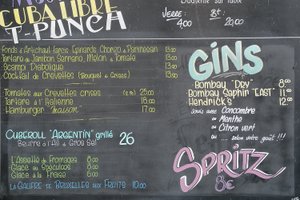 CUBA LIBRE
T-PUNCH
VERRE : 4.00 20.00
Fonds d'Artichaut farcis Canards Chorizo & Parmesan 13.00
Tartare de Jambon Serrano, Melon & Tomate 13.00
Scampi Diabolique 13.00
Cocktail de Crevettes (Bouquet & Grises) 15.00
Tomates aux Crevettes grises 25.00
Tartare à l'Italienne 18.00
Hamburger maison 17.00
CUBEROLL "ARGENTIN" grillé 26
Beurre à l'Ail & Gros Sel
L'Assiette de Fromages 8.00
Glace au Spéculoos 8.00
Glace à la Fraise 8.00
LA GAUFRE DE BRUXELLES AUX FRUITS 10.00
GINS
BOMBAY "DRY" 8.00
BOMBAY SAPHIR "EAST" 11.00
HENDRICK'S 12.00
servis avec Concombre
ou Menthe
ou Citron vert
SPRITZ
8€